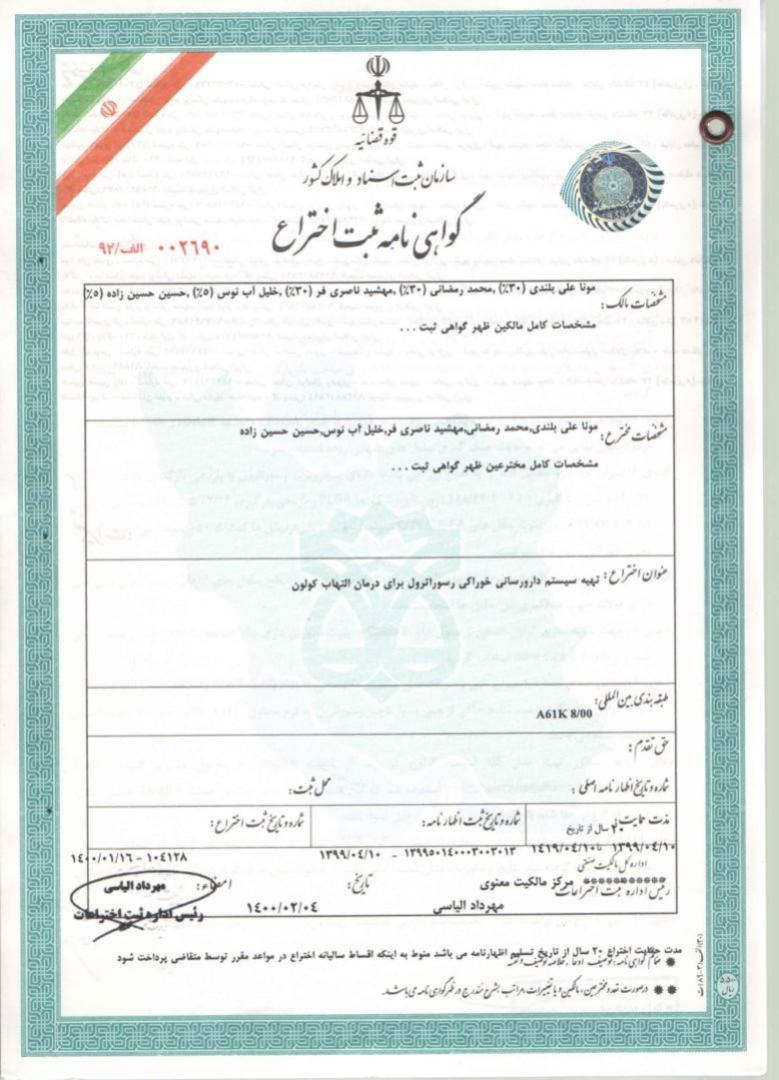 قوه قضائیه
سازمان ثبت اسناد و املاک کشور
گواهی نامه ثبت اختراع
الف/۹۲ ۰۰۲۶۹۰
مشخصات مالک: مونا علی بلندی (۳۰٪) ,محمد رمضانی (۳۰٪) ,مهشید ناصری فر (۳۰٪) ,خلیل آب نوس (۵٪) ,حسین حسین زاده (۵٪)
مشخصات کامل مالکین ظهر گواهی ثبت ...
مشخصات مخترع: مونا علی بلندی,محمد رمضانی,مهشید ناصری فر,خلیل آب نوس,حسین حسین زاده
مشخصات کامل مخترعین ظهر گواهی ثبت ...
عنوان اختراع: تهیه سیستم دارورسانی خوراکی رسوراترول برای درمان التهاب کولون
طبقه بندی بین المللی: A61K 8/00
حق تقدم:
شماره و تاریخ اظهارنامه اصلی: محل ثبت:
مدت حمایت: ۲۰ سال از تاریخ شماره و تاریخ ثبت اظهارنامه: شماره و تاریخ ثبت اختراع:
۱۳۹۹/۰۴/۱۰ تا ۱۴۱۹/۰۴/۱۰ ۱۳۹۹۵۰۱۴۰۰۰۳۰۰۳۰۱۳ - ۱۳۹۹/۰۴/۱۰ ۱۰۴۱۲۸ - ۱۴۰۰/۰۱/۱۶
اداره کل مالکیت صنعتی
رئیس اداره ثبت اختراعات مرکز مالکیت معنوی تاریخ: امضاء: مهرداد الیاسی
مهرداد الیاسی ۱۴۰۰/۰۲/۰۴ رئیس اداره ثبت اختراعات
مدت حمایت اختراع ۲۰ سال از تاریخ تسلیم اظهارنامه می باشد منوط به اینکه اقساط سالیانه اختراع در مواعد مقرر توسط متقاضی پرداخت شود
ضمائم گواهی نامه: توصیف، ادعا، خلاصه توصیف و نقشه
در صورت تعدد مخترعین، مالکین و یا تغییرات، مراتب بشرح مندرج در ظهر گواهی نامه می باشد.
۵,۵۰۰ ریال